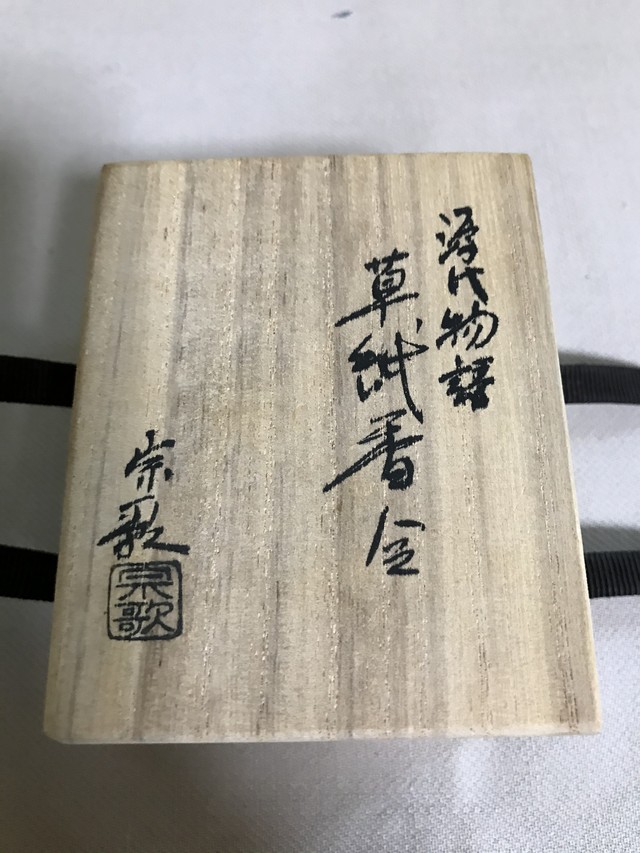 源氏物語
草紙香合
宗歌
宗歌